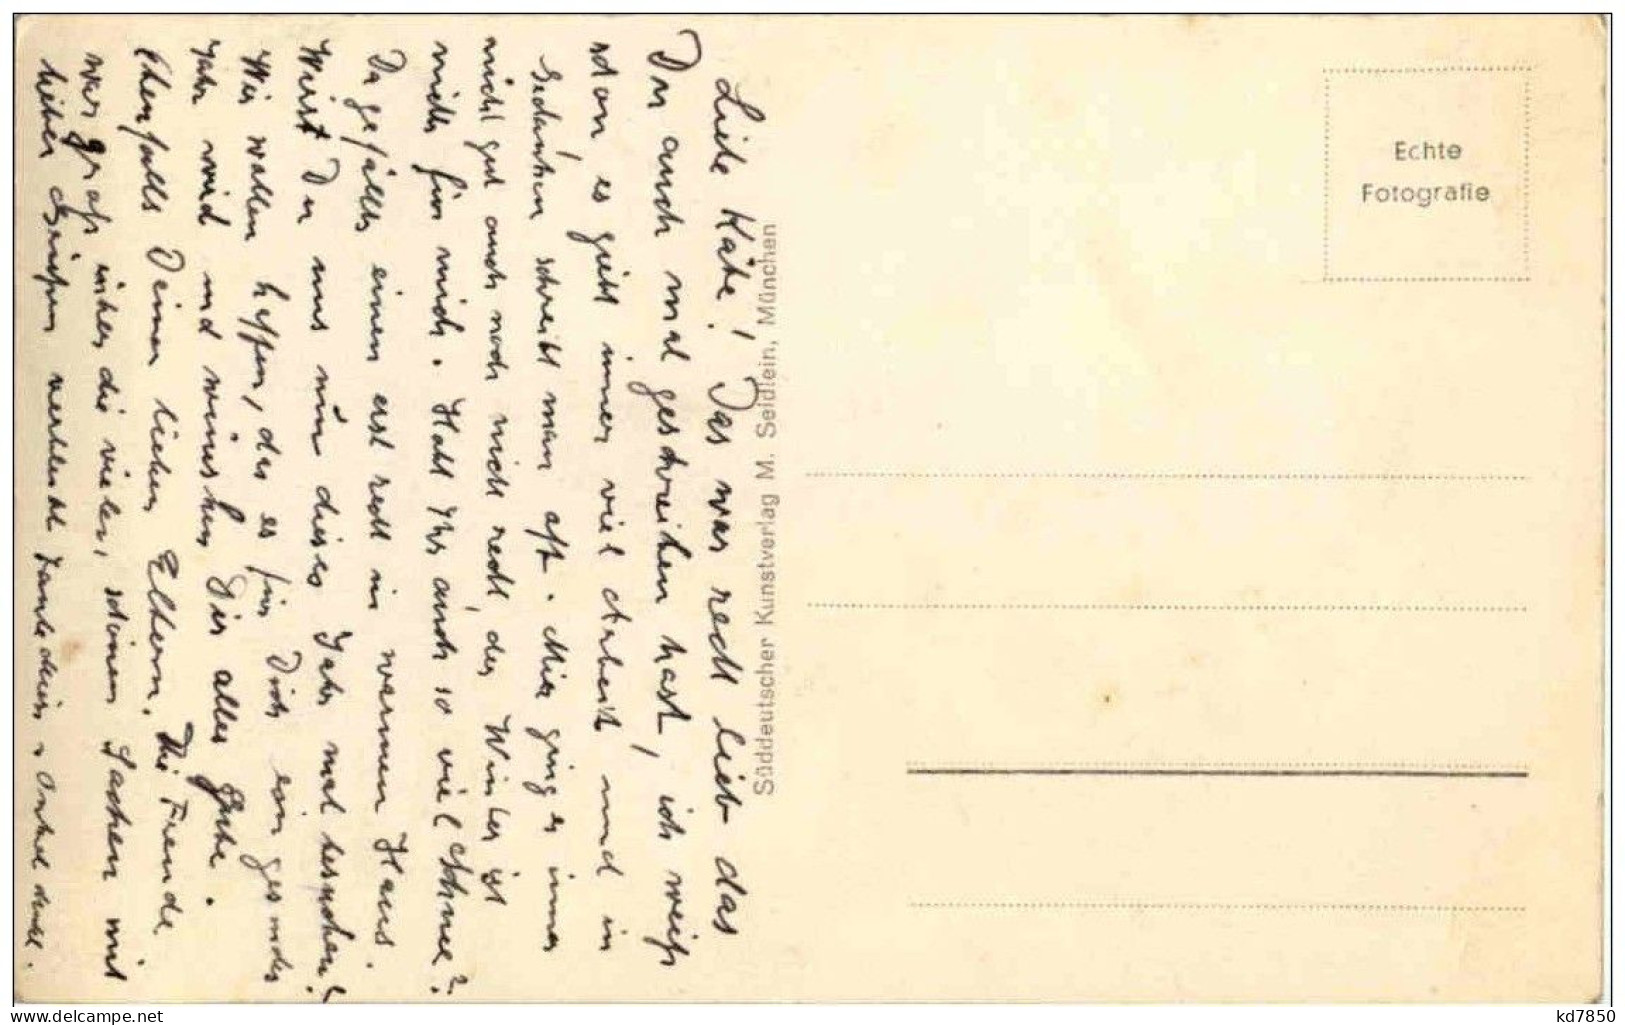 Liebe Käte! Das war recht lieb das
Du auch mal geschreiben hast, ich weiß
schon, es giebt immer viel Arbeit und in
Gedanken schreibt man oft. Mir ging es immer
nicht gut auch noch nicht recht, der Winter ist
nichts für mich. Habt Ihr auch so viel Schnee?
Da gefällts einem erst recht im warmen Haus.
Wirst Du uns nun dieses Jahr mal besuchen?
Wir wollen hoffen, das es für Dich ein gesundes
Jahr wird und wünschen Dir alles Gute.
Ebenfalls Deinen lieben Eltern. Die Freude
war groß über die vielen, schönen Sachen mit
lieben Grüßen verbleibt Tante u. Onkel
Süddeutscher Kunstverlag M. Seidlein, München
Echte
Fotografie
kd7850